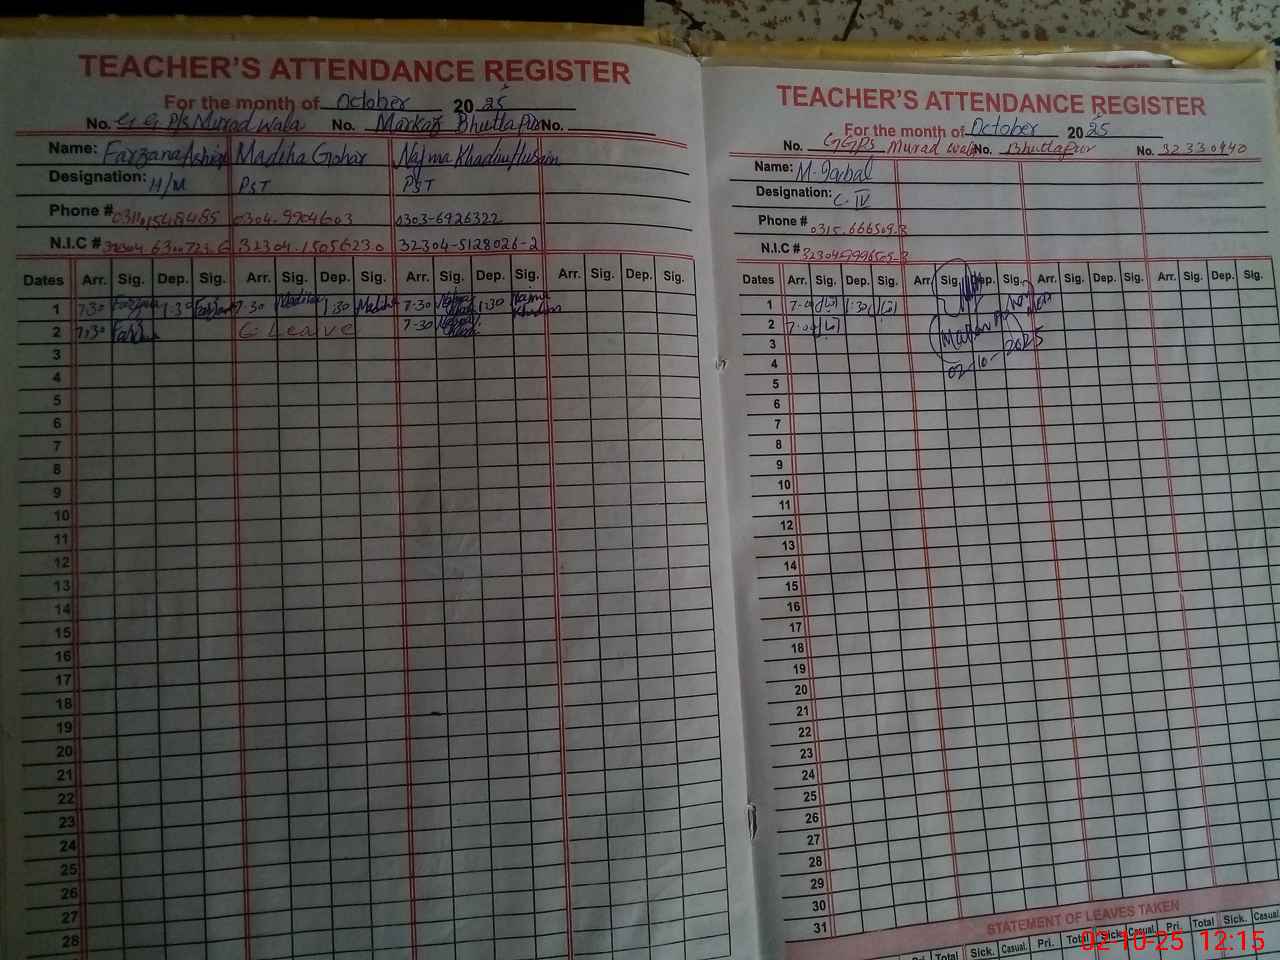 TEACHER'S ATTENDANCE REGISTER
For the month of October 20 25
No. G G P/s Murad wala No. Markaz Bhutta Pur No.
Name: Farzana Ashiq Madiha Gohar Najma Khadim Hussain
Designation: H/M PST PST
Phone # 0304.9904603 0303-6926322
N.I.C # 32304.1505623.0 32304-5128026-2
Dates Arr. Sig. Dep. Sig. Arr. Sig. Dep. Sig. Arr. Sig. Dep. Sig. Arr. Sig. Dep. Sig.
1 7:30 Farzana 1:30 Farzana 7-30 Madiha 1:30 Madiha 7-30 Najma 1:30 Najma Khadim
2 7:30 C. Leave 7-30 Najma
3
4
5
6
7
8
9
10
11
12
13
14
15
16
17
18
19
20
21
22
23
24
25
26
27
28
TEACHER'S ATTENDANCE REGISTER
For the month of October 20 25
No. GGPS Murad wala No. Bhuttapur No. 32330440
Name: M. Iqbal
Designation: C. IV
Phone # 0315.666509.3
N.I.C #
Dates Arr. Sig. Dep. Sig. Arr. Sig. Dep. Sig. Arr. Sig. Dep. Sig. Arr. Sig. Dep. Sig.
1 7-00 1:30
2 7-00
3
4
02-10-2025
5
6
7
8
9
10
11
12
13
14
15
16
17
18
19
20
21
22
23
24
25
26
27
28
29
30
31
STATEMENT OF LEAVES TAKEN
Pri. Total Sick. Casual. Pri. Total Sick. Casual. Pri. Total Sick. Casual
02-10-25 12:15